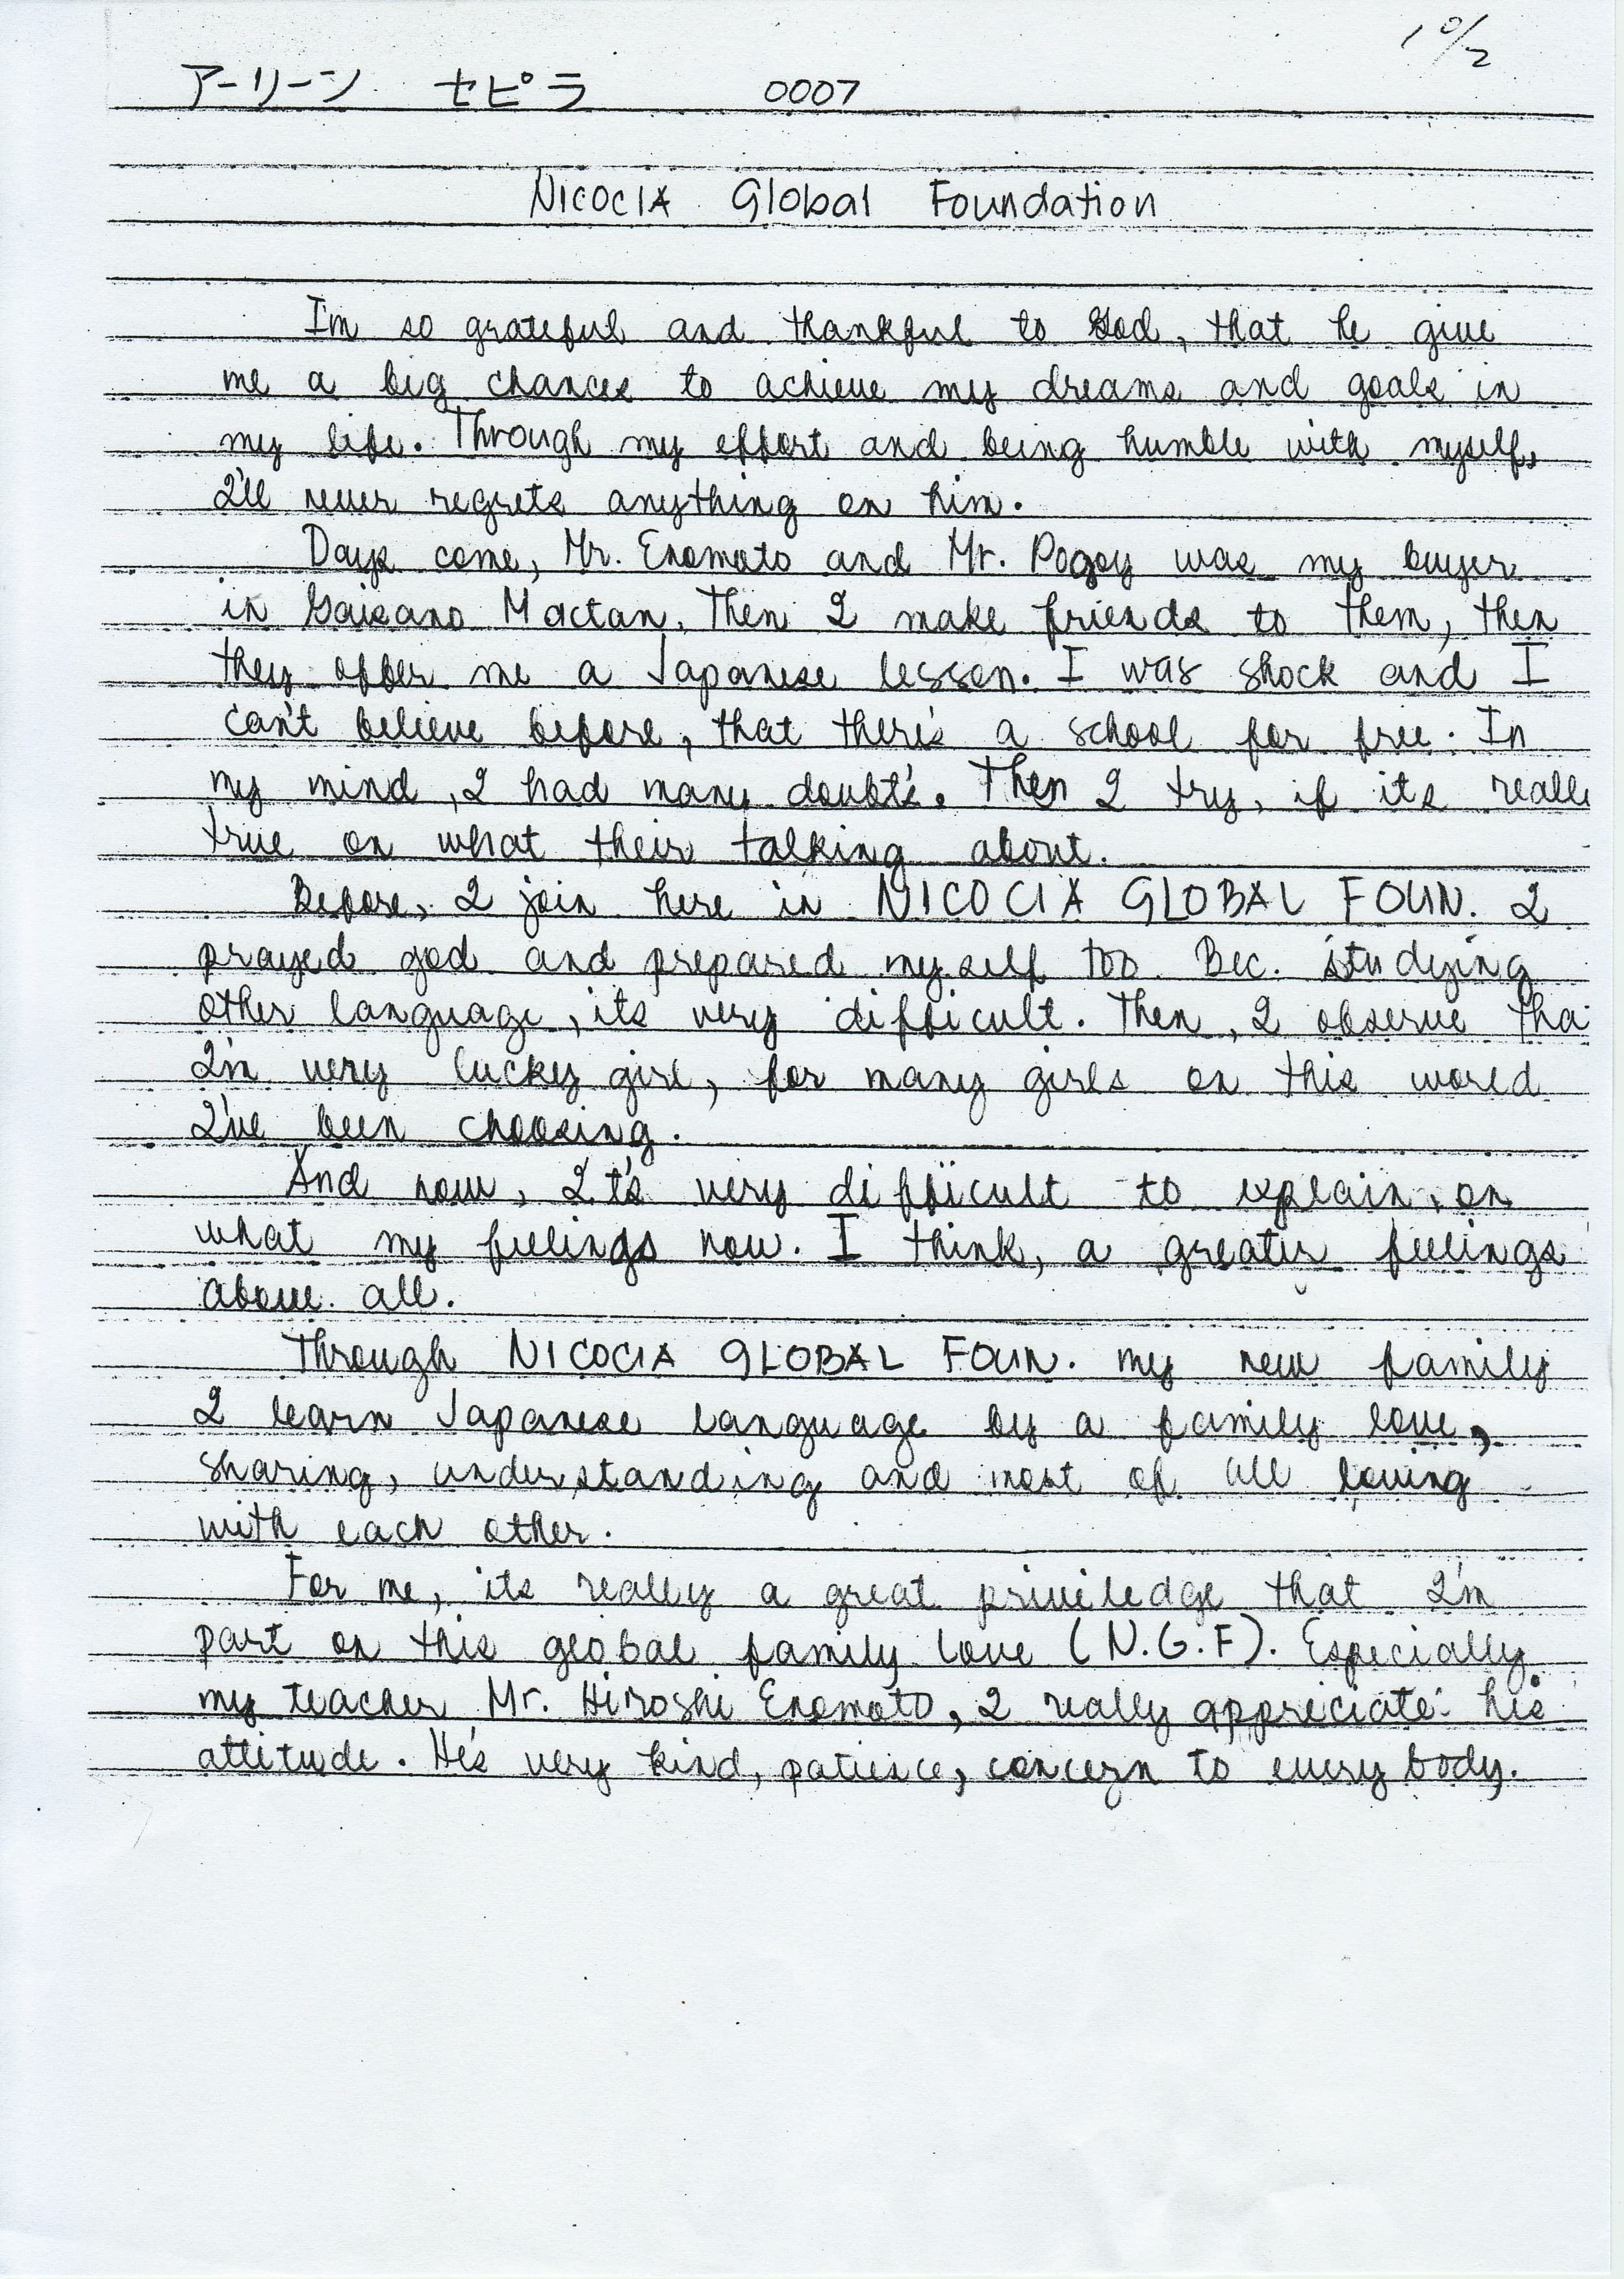 1 0/2
アーリーン セピラ 0007
NICOCIA Global Foundation
I'm so grateful and thankful to God, that he give
me a big chances to achieve my dreams and goals in
my life. Through my effort and being humble with myself,
I'll never regrets anything on him.
Days come, Mr. Enomoto and Mr. Pogoy was my buyer
in Gaisano Mactan. Then I make friends to them, then
they offer me a Japanese lesson. I was shock and I
can't believe before, that there's a school for free. In
my mind, I had many doubt's. Then I try, if its reall
true on what their talking about.
Before, I join here in NICOCIA GLOBAL FOUN. I
prayed god and prepared myself too. Bec. studying
other language, its very difficult. Then, I observe tha
I'm very lucky girl, for many girls on this world
I've been choosing.
And now, It's very difficult to explain, on
what my feelings now. I think, a greater feelings
above all.
Through NICOCIA GLOBAL FOUN. my new family
I learn Japanese language by a family love,
sharing, understanding and most of all loving
with each other.
For me, its really a great priviledge that I'm
part on this global family love (N.G.F). Especially
my teacher Mr. Hiroshi Enomoto, I really appreciate his
attitude. He's very kind, patience, concern to every body.